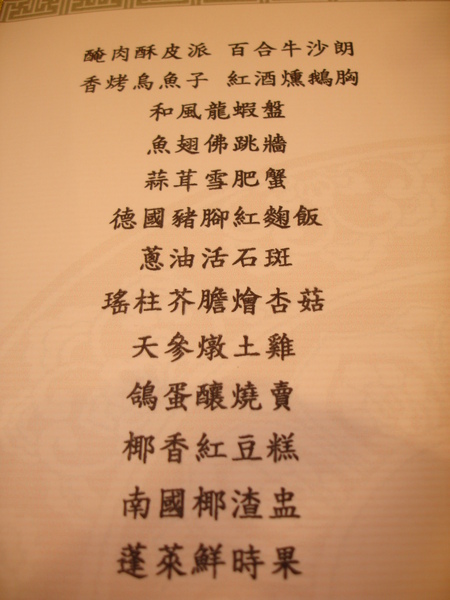 醃肉酥皮派 百合牛沙朗
香烤烏魚子 紅酒燻鵝胸
和風龍蝦盤
魚翅佛跳牆
蒜茸雪肥蟹
德國豬腳紅麴飯
蔥油活石斑
瑤柱芥膽燴杏菇
天參燉土雞
鴿蛋釀燒賣
椰香紅豆糕
南國椰渣盅
蓬萊鮮時果